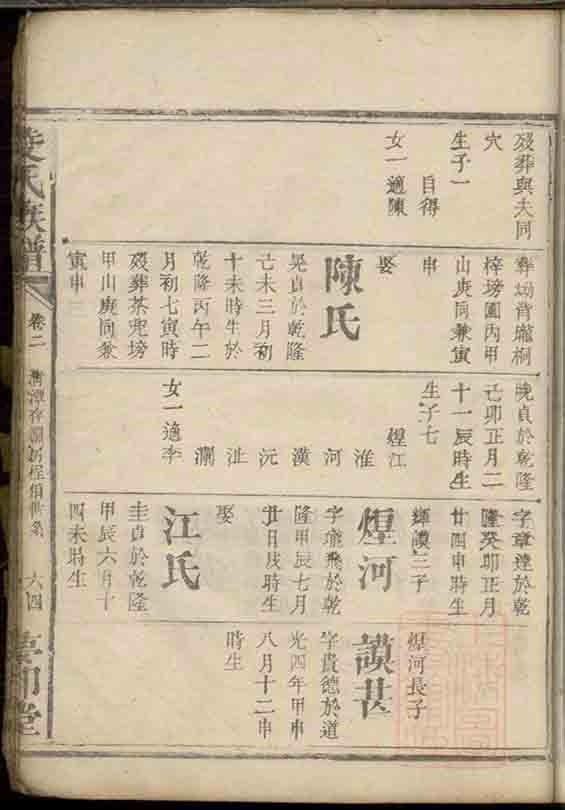 歿葬與夫同
穴
生子一
自得
女一適陳
梓塝園內甲
山庚向兼寅
申
娶
陳氏
晃貞於乾隆
己未三月初
十未時生於
乾隆丙午二
月初七寅時
歿葬茶兜塝
甲山庚向兼
寅申三
晚貞於乾隆
己卯正月二
十一辰時生
生子七
煋江
淮
河
漢
沅
沚
澗
女一適李
字章達於乾
隆癸卯正月
廿四申時生
輝謨三子
煋河
字瓊飛於乾
隆甲辰七月
廿日戌時生
娶
江氏
圭貞於乾隆
甲辰六月十
四未時生
煋河長子
謨甚
字貴德於道
光四年甲申
八月十二申
時生
氏族譜
卷二
六四